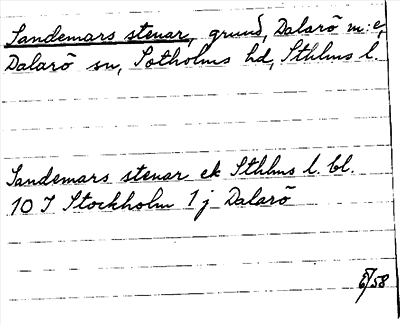 Sandemars stenar, grund, Dalarö m:e,
Dalarö sn, Sotholms hd, Sthlms l.
Sandemars stenar ek Sthlms l. bl.
10 I Stockholm 1 j Dalarö
6/58